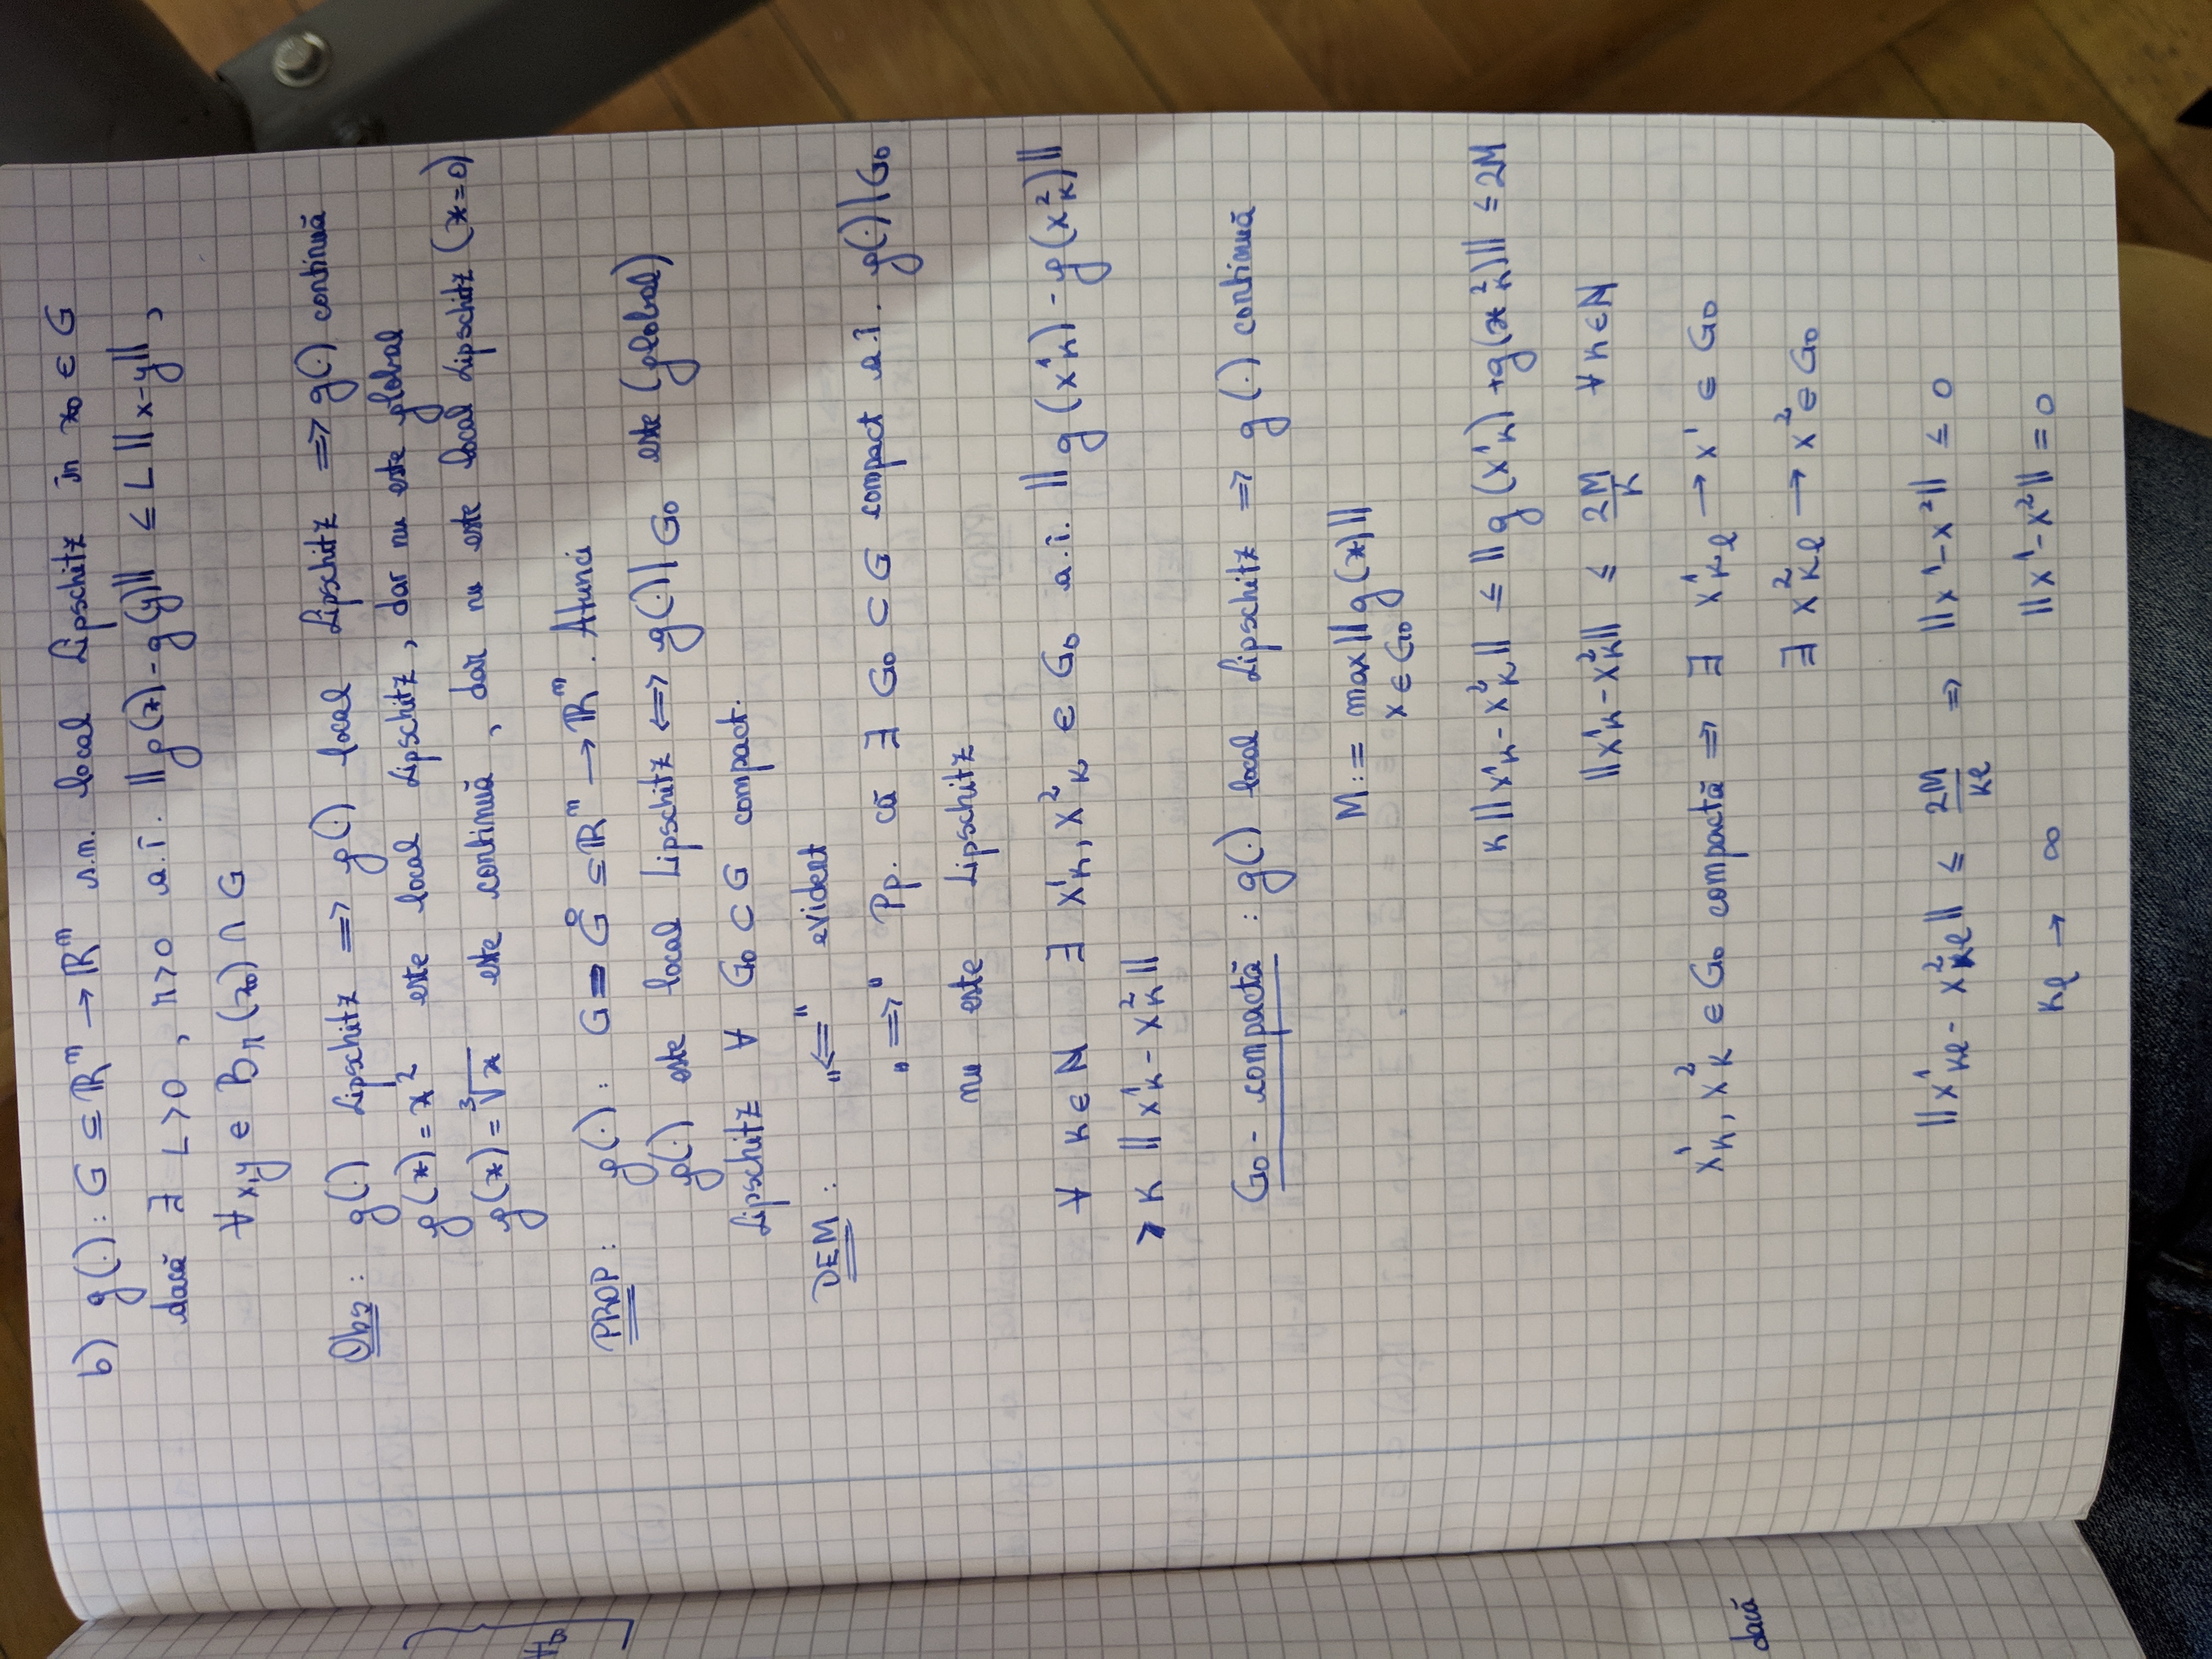 b) g(·): G ⊆ ℝⁿ → ℝᵐ s.n. local Lipschitz în x₀ ∈ G
dacă ∃ L>0, r>0 a.î. ||g(x)-g(y)|| ≤ L ||x-y||,
∀ x,y ∈ Bᵣ(x₀) ∩ G
Obs: g(·) Lipschitz ⟹ g(·) local Lipschitz ⟹ g(·) continuă
g(x) = x² este local Lipschitz, dar nu este global
g(x) = ∛x este continuă, dar nu este local Lipschitz (x=0)
PROP: g(·): G = G̊ ⊆ ℝⁿ → ℝᵐ. Atunci
g(·) este local Lipschitz ⟺ g(·)|G₀ este (global)
Lipschitz ∀ G₀ ⊂ G compact.
DEM: „⟸" evident
„⟹" Pp. că ∃ G₀ ⊂ G compact a.î. g(·)|G₀
nu este Lipschitz
∀ k∈ℕ ∃ x¹ₖ, x²ₖ ∈ G₀ a.î. ||g(x¹ₖ) - g(x²ₖ)||
> k ||x¹ₖ - x²ₖ||
G₀ - compactă : g(·) local Lipschitz ⟹ g(·) continuă
M := max ||g(x)||
x ∈ G₀
k ||x¹ₖ - x²ₖ|| ≤ ||g(x¹ₖ) + g(x²ₖ)|| ≤ 2M
||x¹ₖ - x²ₖ|| ≤ 2M/k ∀ k∈ℕ
x¹ₖ, x²ₖ ∈ G₀ compactă ⟹ ∃ x¹ₖₗ → x¹ ∈ G₀
∃ x²ₖₗ → x² ∈ G₀
||x¹ₖₗ - x²ₖₗ|| ≤ 2M/kₗ ⟹ ||x¹-x²|| ≤ 0
kₗ → ∞ ||x¹-x²|| = 0
dacă